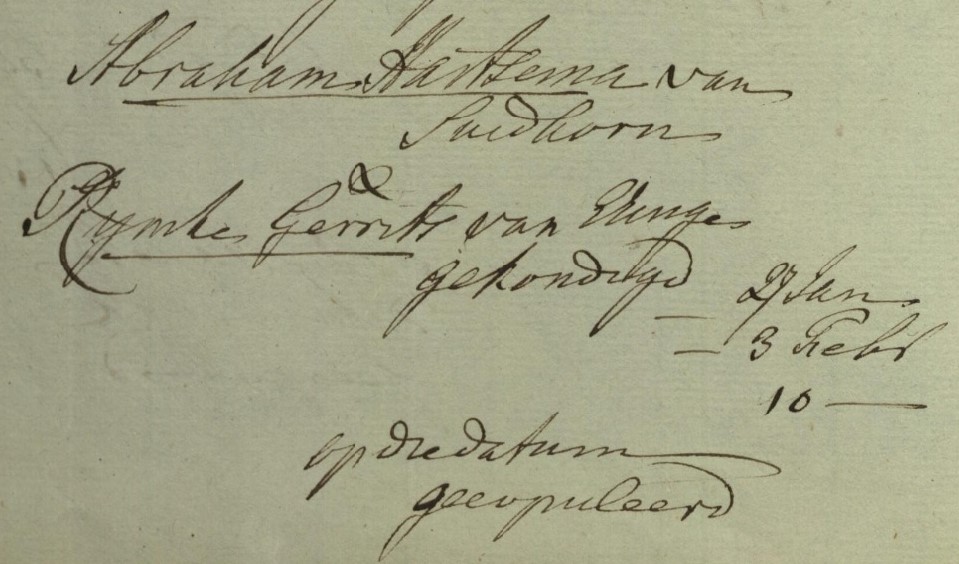 Abraham Hartsema van
Suidhorn
&
Rymke Gerrits van Ehinge
gekondigd
— 27 Jan
— 3 Febr
10 —
op die datum
gecopuleerd